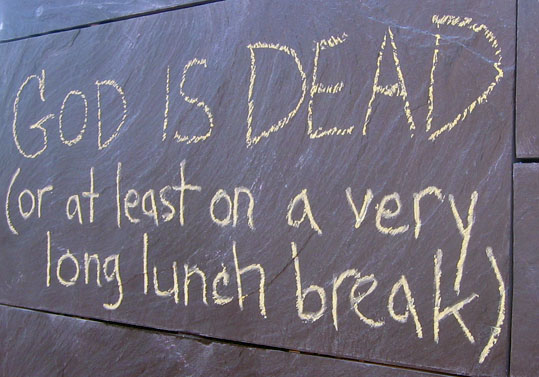 GOD IS DEAD
(or at least on a very
long lunch break)